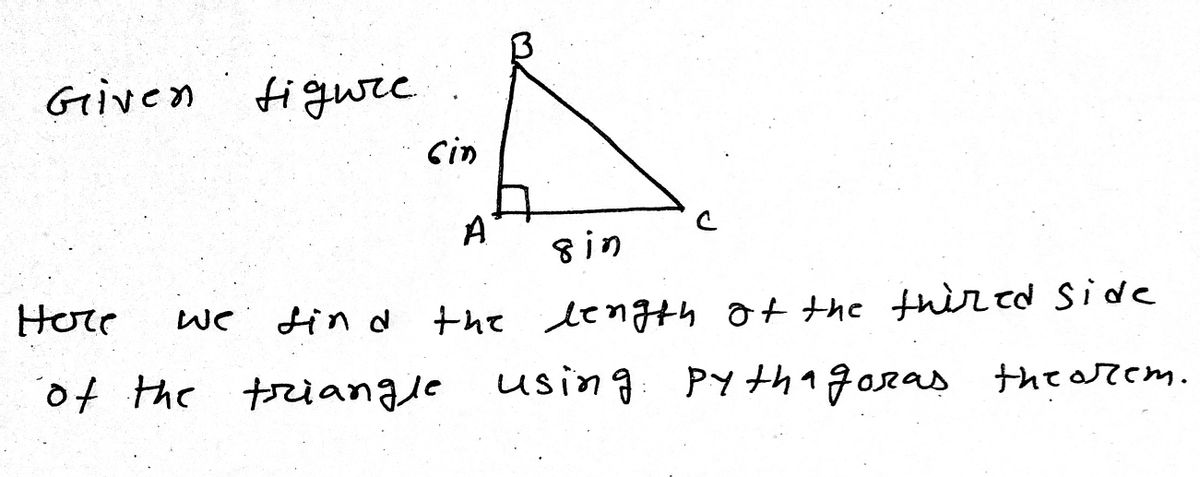 Given figure.
B
6in
A
C
8in
Here we find the length of the third side
of the triangle using Pythagoras theorem.